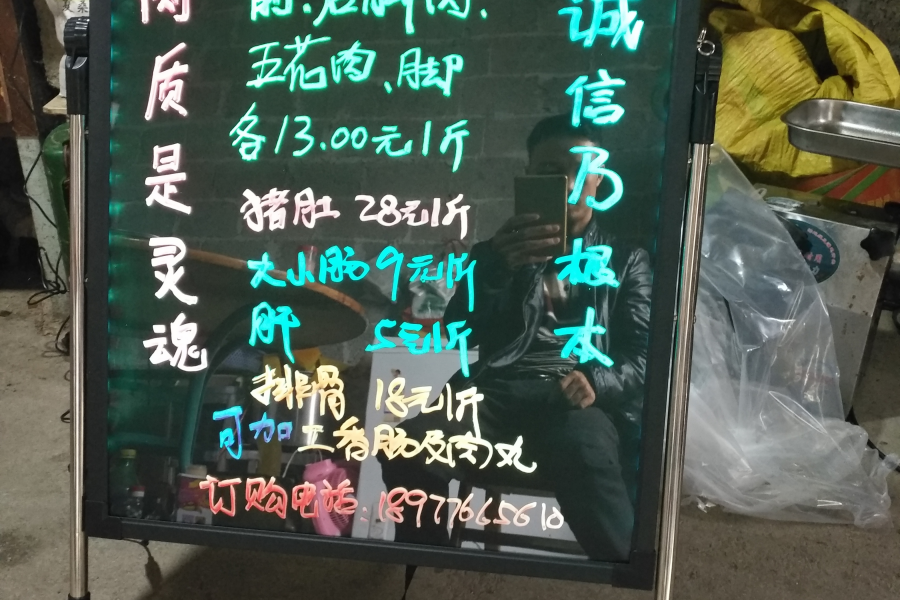 肉质是灵魂
五花肉、脚
各13.00元1斤
猪肚 28元1斤
大小肠9元1斤
肝 5元1斤
排骨 18元1斤
可加工香肠及肉丸
订购电话:
诚信乃根本